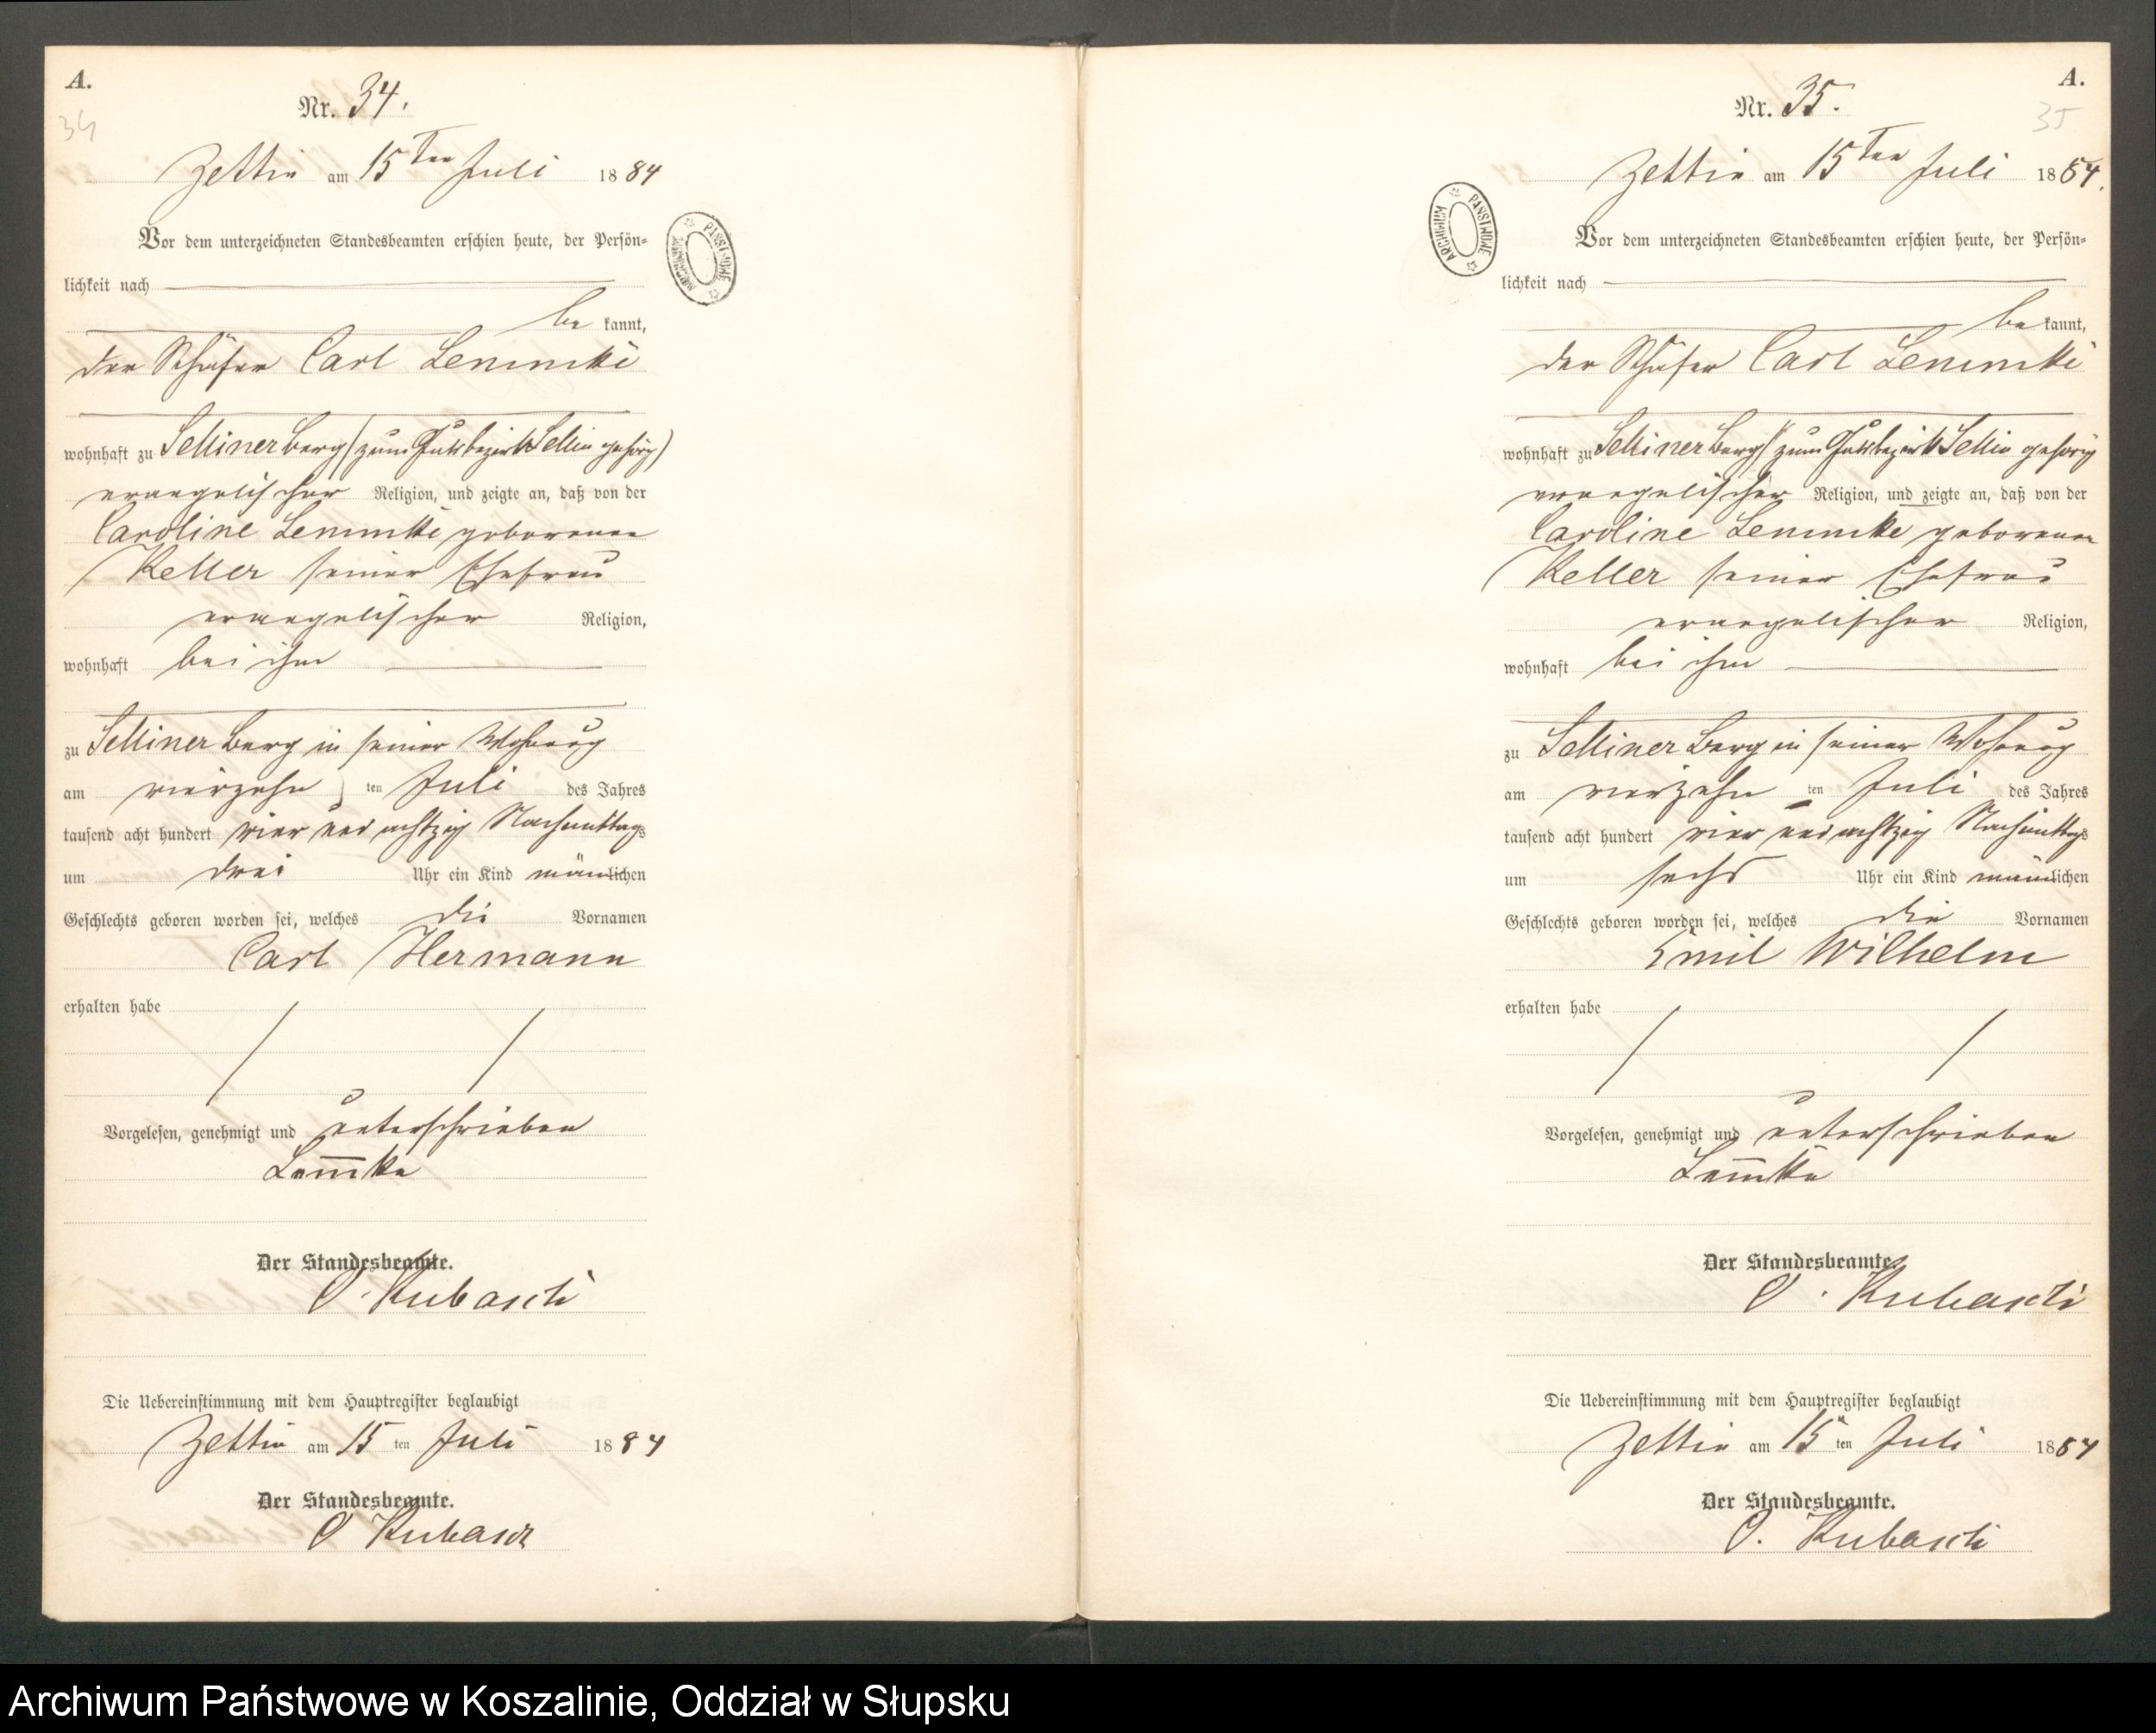 A.
34
Nr. 34.
Zettin am 15ten Juli 1884
Vor dem unterzeichneten Standesbeamten erschien heute, der Persön-
lichkeit nach
be kannt,
der Schäfer Carl Lemmke
wohnhaft zu Selliner Berg (zum Gutsbezirk Sellin gehörig)
evangelischer Religion, und zeigte an, daß von der
Caroline Lemmke geborenen
Keller seiner Ehefrau
evangelischer Religion,
wohnhaft bei ihm
zu Selliner Berg in seiner Wohnung
am vierzehn ten Juli des Jahres
tausend acht hundert vier und achtzig Nachmittags
um drei Uhr ein Kind männlichen
Geschlechts geboren worden sei, welches die Vornamen
Carl Hermann
erhalten habe
Vorgelesen, genehmigt und unterschrieben
Lem̅ke
Der Standesbeamte.
O. Kubasch
Die Uebereinstimmung mit dem Hauptregister beglaubigt
Zettin am 15 ten Juli 1884
Der Standesbeamte.
O Kubasch
ARCHIWUM PAŃSTWOWE
A.
35
Nr. 35.
Zettin am 15ten Juli 1884.
Vor dem unterzeichneten Standesbeamten erschien heute, der Persön-
lichkeit nach
be kannt,
der Schäfer Carl Lemmke
wohnhaft zu Selliner Berg (zum Gutsbezirk Sellin gehörig
evangelischer Religion, und zeigte an, daß von der
Caroline Lemmke geborenen
Keller seiner Ehefrau
evangelischer Religion,
wohnhaft bei ihm
zu Selliner Berg in seiner Wohnung
am vierzehn ten Juli des Jahres
tausend acht hundert vier und achtzig Nachmittags
um sechs Uhr ein Kind männlichen
Geschlechts geboren worden sei, welches die Vornamen
Emil Wilhelm
erhalten habe
Vorgelesen, genehmigt und unterschrieben
Lem̅ke
Der Standesbeamte.
O. Kubasch
Die Uebereinstimmung mit dem Hauptregister beglaubigt
Zettin am 15 ten Juli 1884
Der Standesbeamte.
O. Kubasch
ARCHIWUM PAŃSTWOWE
Archiwum Państwowe w Koszalinie, Oddział w Słupsku